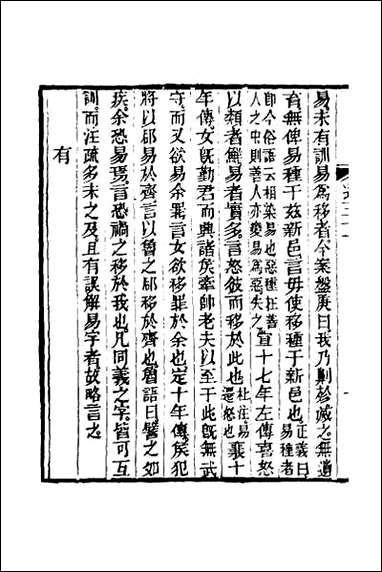 易未有訓易為移者今案盤庚曰我乃劓殄滅之無遺
育無俾易種于茲新邑言毋使移種于新邑也正義曰易種者
即今俗語云相染易也惡種在善人之中則善人亦變易為惡失之宣十七年左傳喜怒
以類者鮮易者實多言怒彼而移於此也杜注易遷怒也襄十
年傳女既勤君而興諸侯牽帥老夫以至于此既無武
守而又欲易余罪言女欲移罪於余也定十年傳侯犯
將以郈易於齊言以魯之郈移於齊也魯語曰譬之如
疾余恐易焉言恐禍之移於我也凡同義之字皆可互
訓而注疏多未之及且有誤解易字者故略言之
有